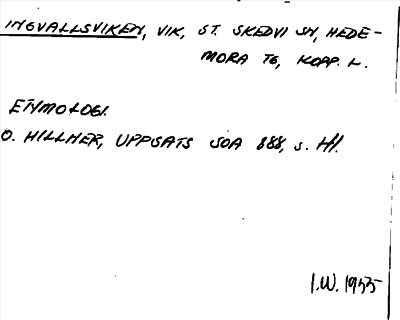 INGVALLSVIKEN, VIK, ST. SKEDVI SN, HEDE-
MORA TG, KOPP. L.
ETYMOLOGI.
O. HILLNER, UPPSATS SOA 888, s.
I.W. 1935